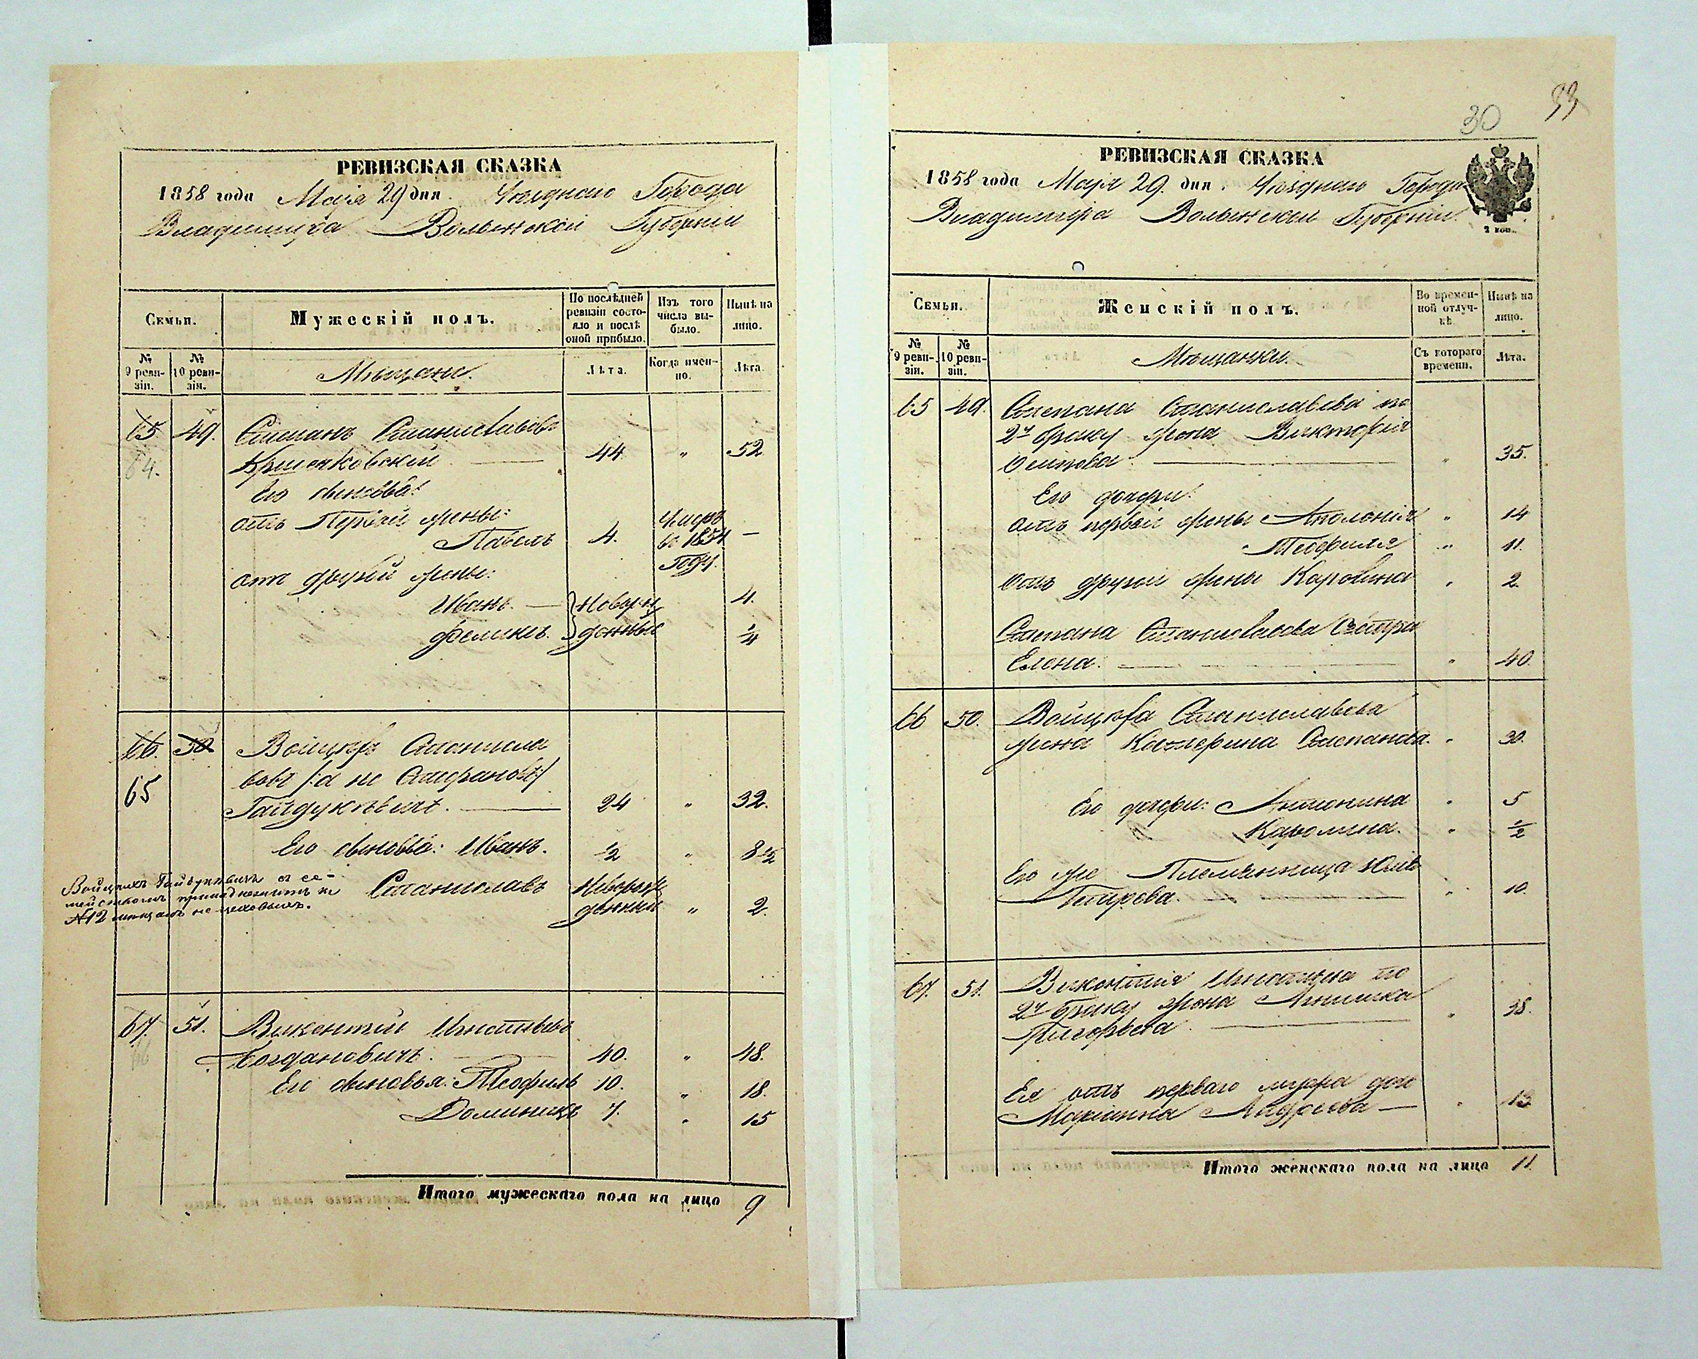 РЕВИЗСКАЯ СКАЗКА
1858 года Мая 29 дня. Уезднаго Города
Владимира Волынской Губерніи
Семьи.
Мужескій полъ.
По послѣдней
ревизіи состо-
яло и послѣ
оной прибыло.
Изъ того
числа вы-
было.
Нынѣ на
лицо.
№
9 реви-
зіи.
№
10 реви-
зія.
Мѣщане.
Лѣта.
Когда имен-
но.
Лѣта.
65 49. Степанъ Станиславовъ
64.
44 " 52
Его сыновья:
отъ Первой жены:
Павелъ 4. Умеръ
въ 1854 —
году.
отъ другой жены:
Иванъ. — Новорож 4.
Феликсъ. денные 1/4
66. 50. Войцехъ Станисла
вовъ /: а не Стефановъ :/
65
Гайдукевичъ. 24 " 32.
Его сыновья: Иванъ. 1/2 " 8 1/2
Войцехъ Гайдукевичъ съ се-
мействомъ принадлежитъ къ
№12 мѣщанъ не цеховыхъ.
Станиславъ Новорож
денный " 2.
67. 51. Викентій Игнатьевъ
66
Богдановичъ. 40. " 48.
Его сыновья: Теофилъ 10. " 18.
Доминикъ 7. " 15
Итого мужескаго пола на лицо 9
30
РЕВИЗСКАЯ СКАЗКА
1858 года Мая 29. дня. Уезднаго Города
Владимира Волынской Губерніи
2 коп.
Семьи.
Женскій полъ.
Во времен-
ной отлуч-
кѣ.
Нынѣ на
лицо.
№
9 реви-
зіи.
№
10 реви-
зіи.
Мѣщанки.
Съ котораго
времени.
Лѣта.
65 49. Степана Станиславова по
2у браку жена Викторія
Осипова. — " 35.
Его дочери:
отъ первой жены Аполонія " 14
Теофиля " 11.
отъ другой жены Каролина " 2
Степана Станиславова Сестра
Елена. — " 40.
66 50. Войцеха Станиславова
жена Катерина Степанова. " 30.
Его дочери: Антонина " 5
Каролина. " 1/2
Его же Племянница Юлія
Петрова. — " 10.
67. 51. Викентія Игнатьева по
2у браку жена Агнишка
Григорьева — " 38.
Ея отъ перваго мужа доч
Маріанна Андреева — " 13
Итого женскаго пола на лицо 11